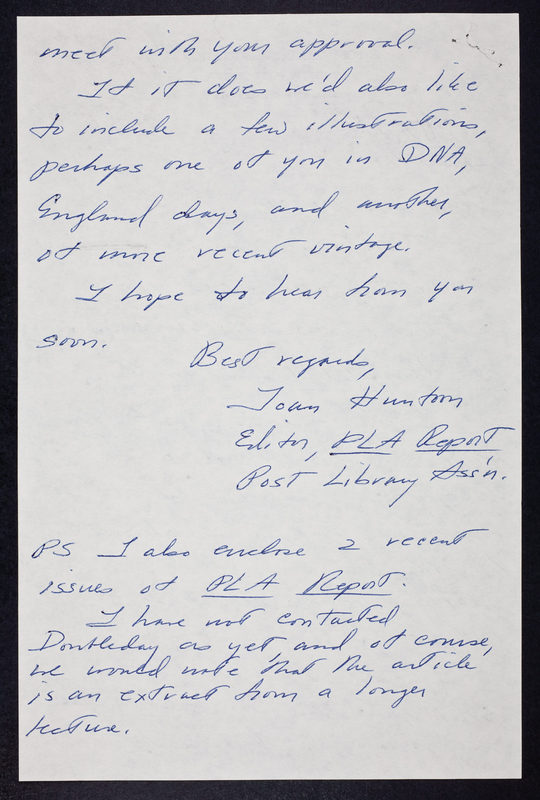 meet with your approval.
If it does we'd also like
to include a few illustrations,
perhaps one of you in DNA,
England days, and another,
of more recent vintage.
I hope to hear from you
soon.
Best regards,
Joan Huntoon
Editor, PLA Report
Post Library Ass'n.
PS I also enclose 2 recent
issues of PLA Report.
I have not contacted
Doubleday as yet, and of course,
we would note that the article
is an extract from a longer
lecture.